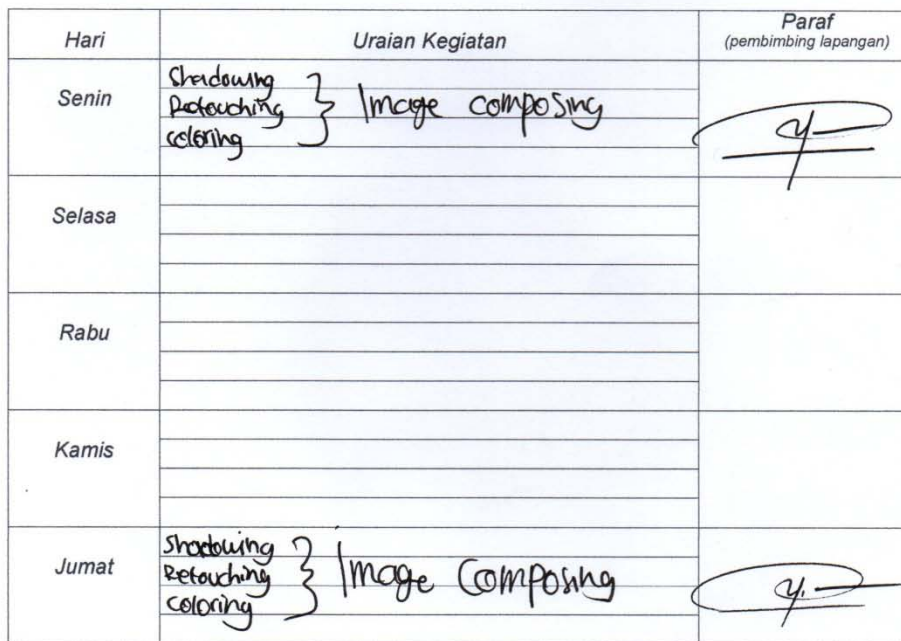 Hari Uraian Kegiatan Paraf
(pembimbing lapangan)
Senin
Shadowing
Retouching
coloring
} Image composing
Selasa
Rabu
Kamis
Jumat
Shadowing
Retouching
coloring
} Image Composing